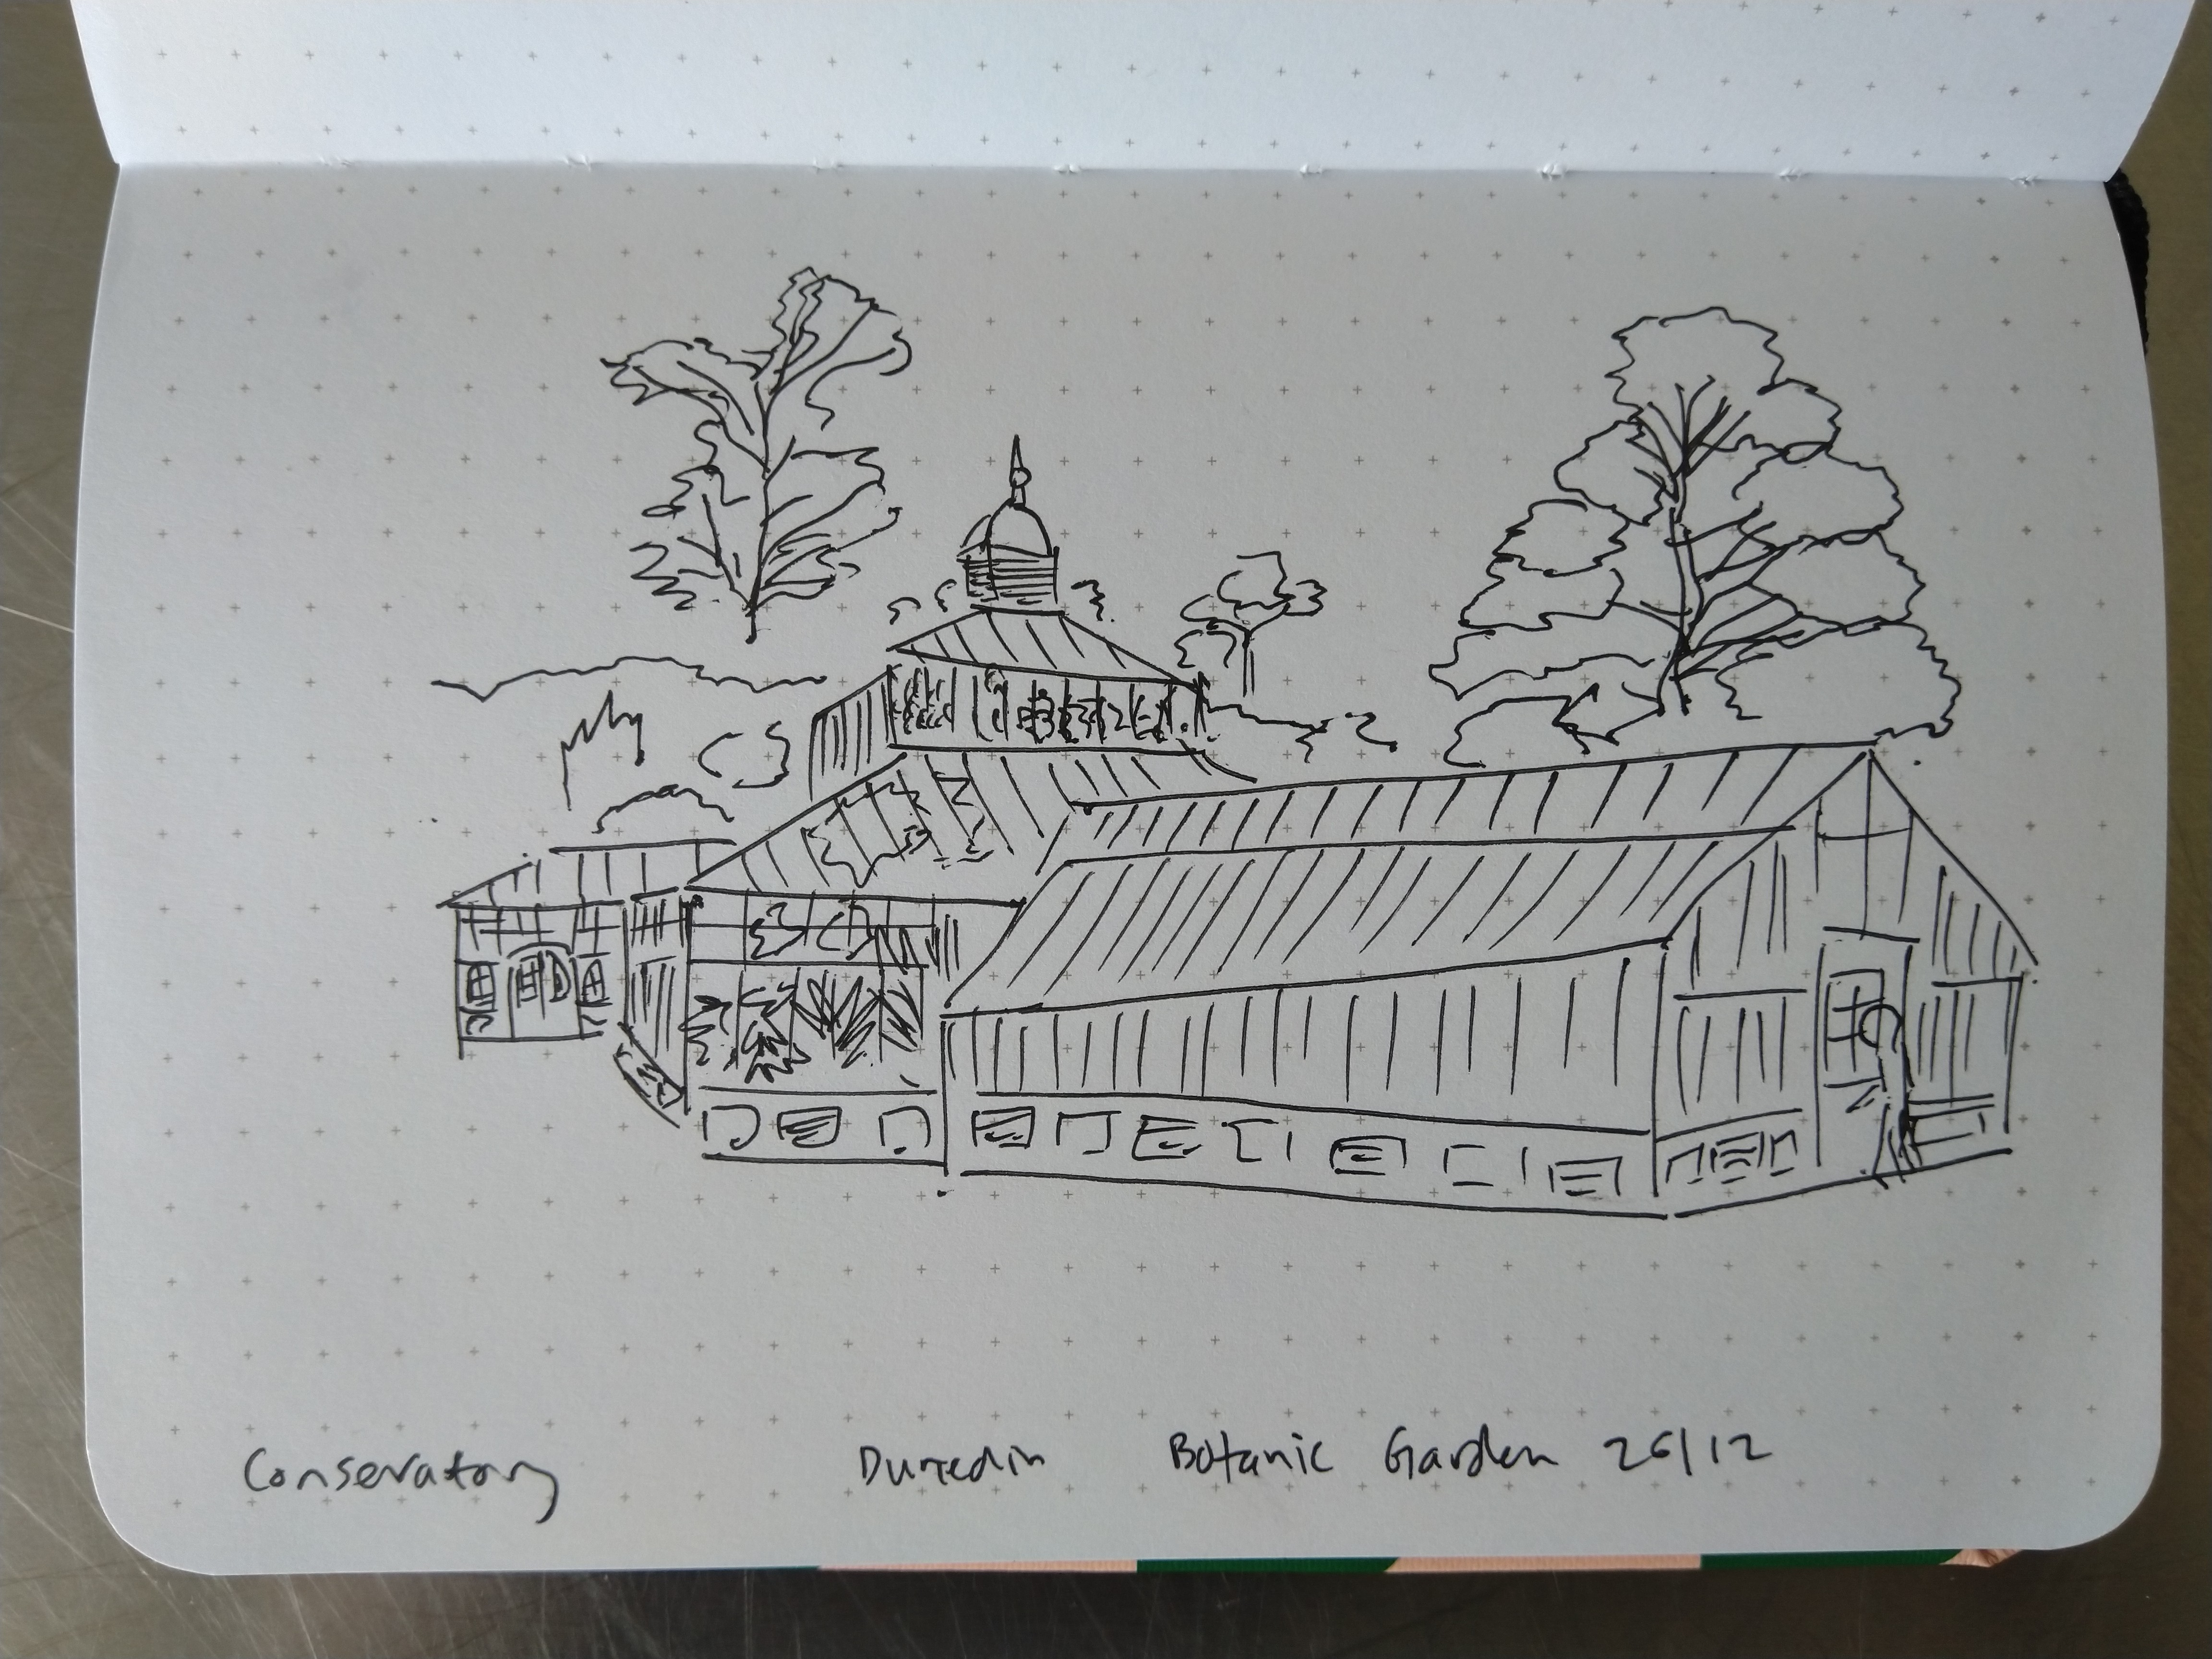 Conservatory Dunedin Botanic Garden 26/12